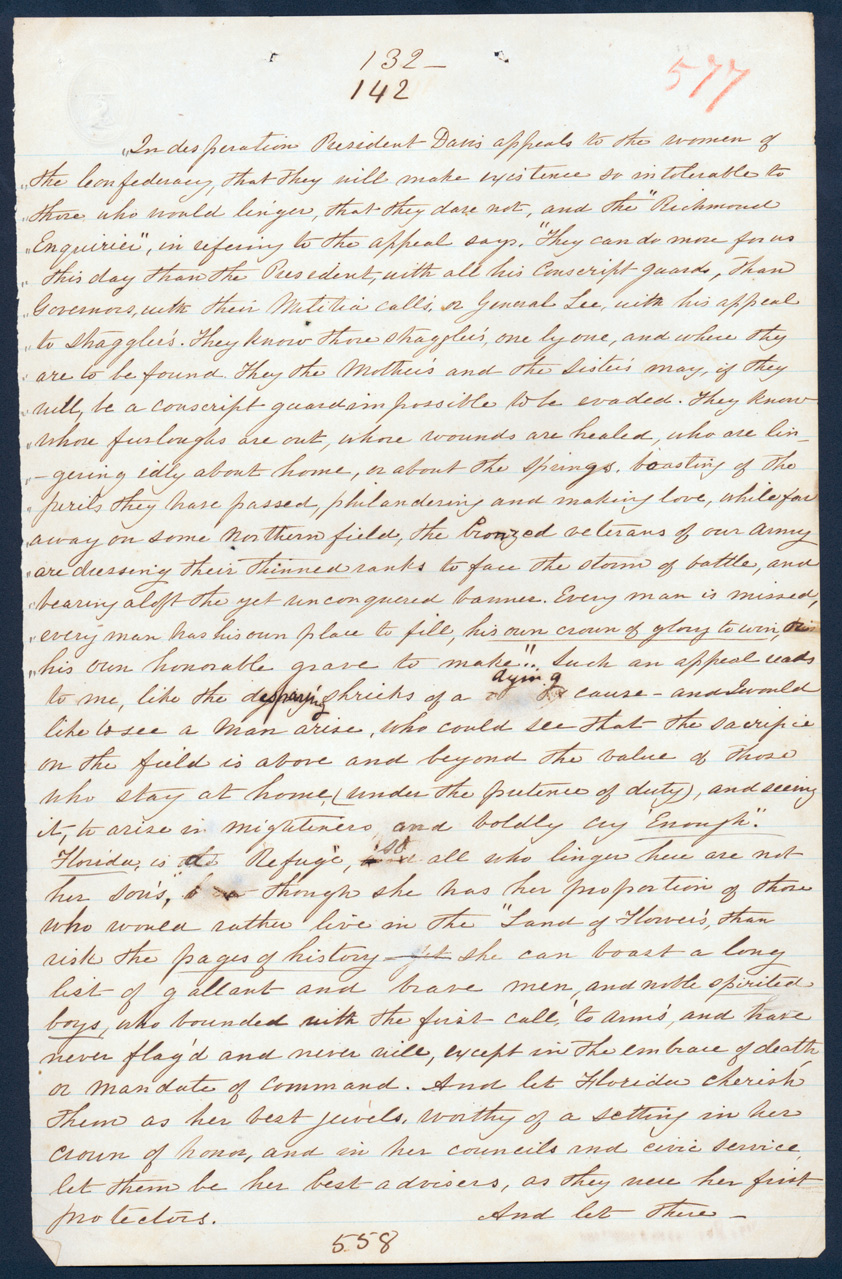 132-
142
577
"In desperation President Davis appeals to the women of
"the Confederacy, that they will make existence so intolerable to
"those who would linger, that they dare not, and the "Richmond
"Enquirier", in refering to the appeal says. "They can do more for us
"this day than the President, with all his Conscript guards, than
"Governors, with their Militia calls, or General Lee, with his appeal
"to straggler's. They know those straggler's, one by one, and where they
"are to be found. They the Mother's and the Sister's may, if they
"will, be a conscript guard impossible to be evaded. They know
"whose furloughs are out, whose wounds are healed, who are lin-
"-gering idly about home, or about the springs. boasting of the
"perils they have passed, philandering and making love, while far
"away on some Northern field, the bronzed veterans of our Army
"are dressing their thinned ranks to face the storm of battle, and
"bearing aloft the yet unconquered banner. Every man is missed,
"every man has his own place to fill, his own crown of glory to win, or
"his own honorable grave to make". Such an appeal reads
to me, like the desparing shrieks of a dying cause - and I would
like to see a Man arise, who could see that the sacrifice
on the field is above and beyond the value of those
who stay at home, (under the pretence of duty), and seeing
it, to arise in mightiness and boldly cry "Enough".
Florida, is a "Refuge", so all who linger here are not
her son's, though she has her proportion of those
who would rather live in the "Land of Flower's, than
risk the pages of history - yet she can boast a long
list of gallant and brave men, and noble spirited
boys, who bounded with the first call, 'to arms', and have
never flag'd and never will, except in the embrace of death,
or mandate of command. And let Florida cherish
them as her best jewels, worthy of a setting in her
crown of honor, and in her councils and civic service,
let them be her best advisers, as they were her first
protectors. And let there -
558